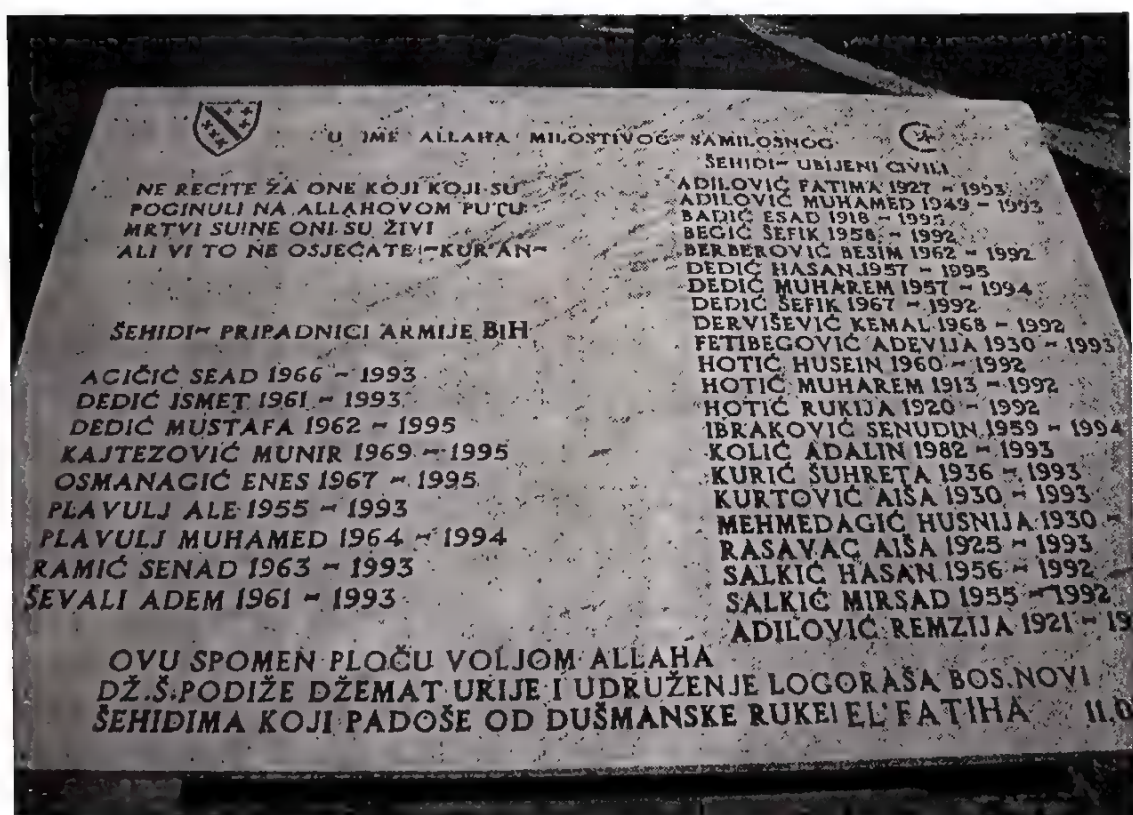 U IME ALLAHA MILOSTIVOG SAMILOSNOG
NE RECITE ZA ONE KOJI KOJI SU
POGINULI NA ALLAHOVOM PUTU
MRTVI SU!NE ONI SU ŽIVI
ALI VI TO NE OSJEĆATE!~KUR'AN~
ŠEHIDI~ PRIPADNICI ARMIJE BiH
AGIČIĆ SEAD 1966 ~ 1993
DEDIĆ ISMET 1961 ~ 1993
DEDIĆ MUSTAFA 1962 ~ 1995
KAJTEZOVIĆ MUNIR 1969 ~ 1995
OSMANAGIĆ ENES 1967 ~ 1995
PLAVULJ ALE 1955 ~ 1993
PLAVULJ MUHAMED 1964 ~ 1994
RAMIĆ SENAD 1963 ~ 1993
ŠEVALI ADEM 1961 ~ 1993
ŠEHIDI~ UBIJENI CIVILI
ADILOVIĆ FATIMA 1927 ~ 1993
ADILOVIĆ MUHAMED 1949 ~ 1993
BADIĆ ESAD 1918 ~ 1995
BEGIĆ ŠEFIK 1958 ~ 1992
BERBEROVIĆ BESIM 1962 ~ 1992
DEDIĆ HASAN 1957 ~ 1995
DEDIĆ MUHAREM 1957 ~ 1994
DEDIĆ ŠEFIK 1967 ~ 1992
DERVIŠEVIĆ KEMAL 1968 ~ 1992
FETIBEGOVIĆ ADEVIJA 1930 ~ 1993
HOTIĆ HUSEIN 1960 ~ 1992
HOTIĆ MUHAREM 1913 ~ 1992
HOTIĆ RUKIJA 1920 ~ 1992
IBRAKOVIĆ SENUDIN 1959 ~ 1994
KOLIĆ ADALIN 1982 ~ 1993
KURIĆ ŠUHRETA 1936 ~ 1993
KURTOVIĆ AIŠA 1930 ~ 1993
MEHMEDAGIĆ HUSNIJA 1930 ~
RASAVAC AIŠA 1925 ~ 1993
SALKIĆ HASAN 1956 ~ 1992
SALKIĆ MIRSAD 1955 ~ 1992
ADILOVIĆ REMZIJA 1921 ~ 19
OVU SPOMEN PLOČU VOLJOM ALLAHA
DŽ.Š.PODIŽE DŽEMAT URIJE I UDRUŽENJE LOGORAŠA BOS.NOVI
ŠEHIDIMA KOJI PADOŠE OD DUŠMANSKE RUKE! EL' FATIHA 11.0